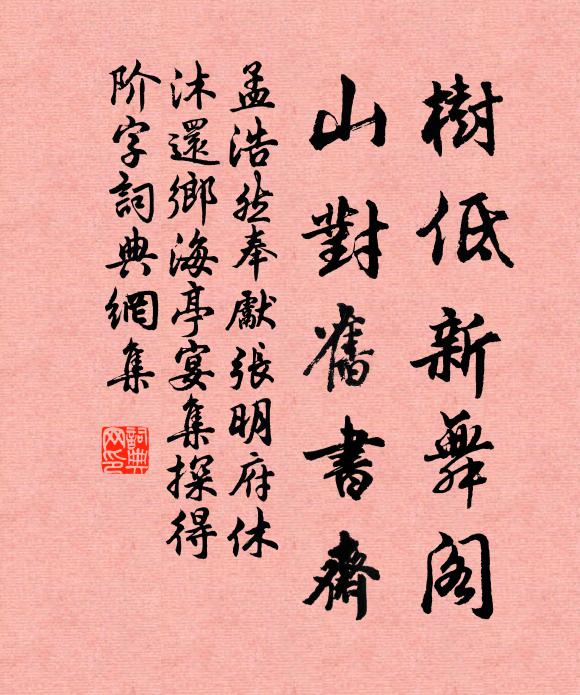 樹低新舞閣
山對舊書齋
孟浩然奉獻張明府休
沐還鄉海亭宴集探得
阶字詞典網集
詞典
网印